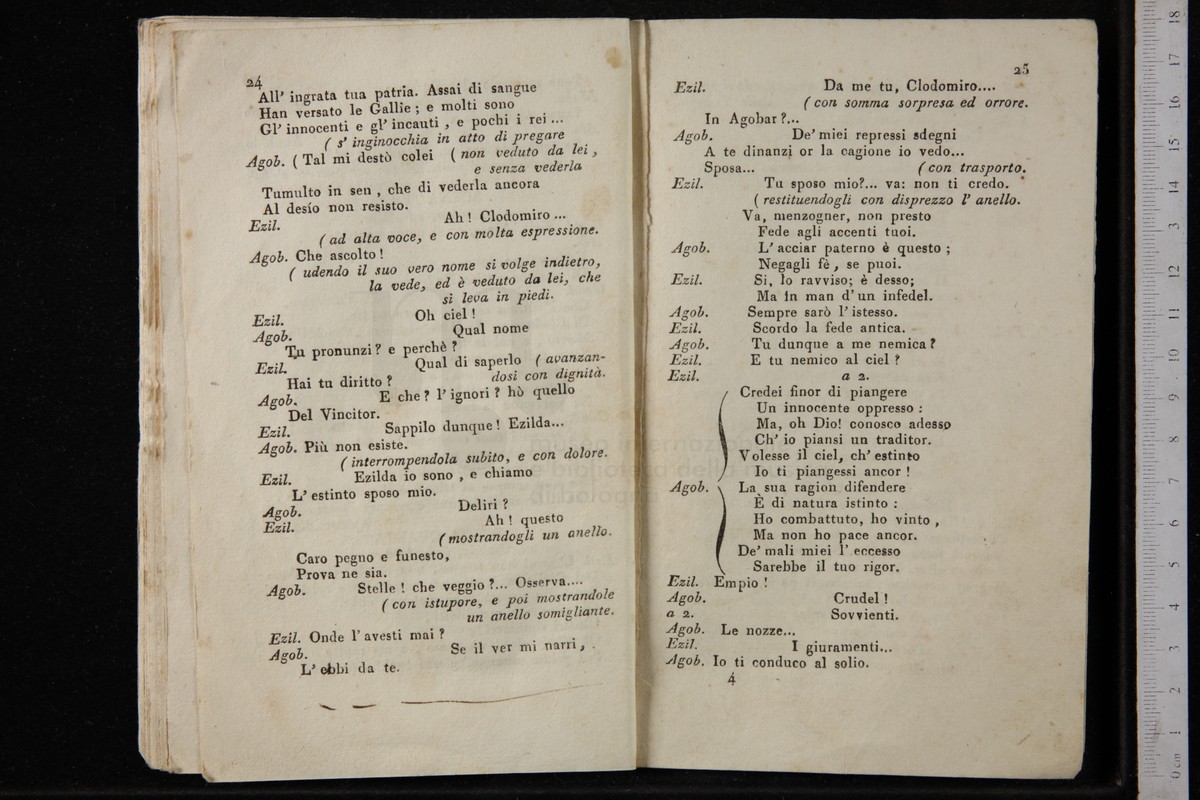 24
All' ingrata tua patria. Assai di sangue
Han versato le Gallie ; e molti sono
Gl' innocenti e gl' incauti , e pochi i rei ...
( s' inginocchia in atto di pregare
Agob. ( Tal mi destò colei ( non veduto da lei ,
e senza vederla
Tumulto in sen , che di vederla ancora
Al desío non resisto.
Ezil. Ah ! Clodomiro ...
( ad alta voce, e con molta espressione.
Agob. Che ascolto !
( udendo il suo vero nome si volge indietro,
la vede, ed è veduto da lei, che
si leva in piedi.
Ezil. Oh ciel !
Agob. Qual nome
Tu pronunzi ? e perchè ?
Ezil. Qual di saperlo ( avanzan-
Hai tu diritto ? dosi con dignità.
Agob. E che ? l' ignori ? hò quello
Del Vincitor.
Ezil. Sappilo dunque ! Ezilda...
Agob. Più non esiste.
( interrompendola subito, e con dolore.
Ezil. Ezilda io sono , e chiamo
L' estinto sposo mio.
Agob. Deliri ?
Ezil. Ah ! questo
( mostrandogli un anello.
Caro pegno e funesto,
Prova ne sia.
Agob. Stelle ! che veggio ?... Osserva....
( con istupore, e poi mostrandole
un anello somigliante.
Ezil. Onde l' avesti mai ?
Agob. Se il ver mi narri, .
L' ebbi da te.
25
Ezil. Da me tu, Clodomiro....
( con somma sorpresa ed orrore.
In Agobar ?...
Agob. De' miei repressi sdegni
A te dinanzi or la cagione io vedo...
Sposa... ( con trasporto.
Ezil. Tu sposo mio?... va: non ti credo.
( restituendogli con disprezzo l' anello.
Va, menzogner, non presto
Fede agli accenti tuoi.
Agob. L' acciar paterno è questo ;
Negagli fè, se puoi.
Ezil. Si, lo ravviso; è desso;
Ma in man d' un infedel.
Agob. Sempre sarò l' istesso.
Ezil. Scordo la fede antica.
Agob. Tu dunque a me nemica ?
Ezil. E tu nemico al ciel ?
Ezil. a 2.
Credei finor di piangere
Un innocente oppresso :
Ma, oh Dio! conosco adesso
Ch' io piansi un traditor.
Volesse il ciel, ch' estinto
Io ti piangessi ancor !
Agob. La sua ragion difendere
È di natura istinto :
Ho combattuto, ho vinto ,
Ma non ho pace ancor.
De' mali miei l' eccesso
Sarebbe il tuo rigor.
Ezil. Empio !
Agob. Crudel !
a 2. Sovvienti.
Agob. Le nozze...
Ezil. I giuramenti...
Agob. Io ti conduco al solio.
4